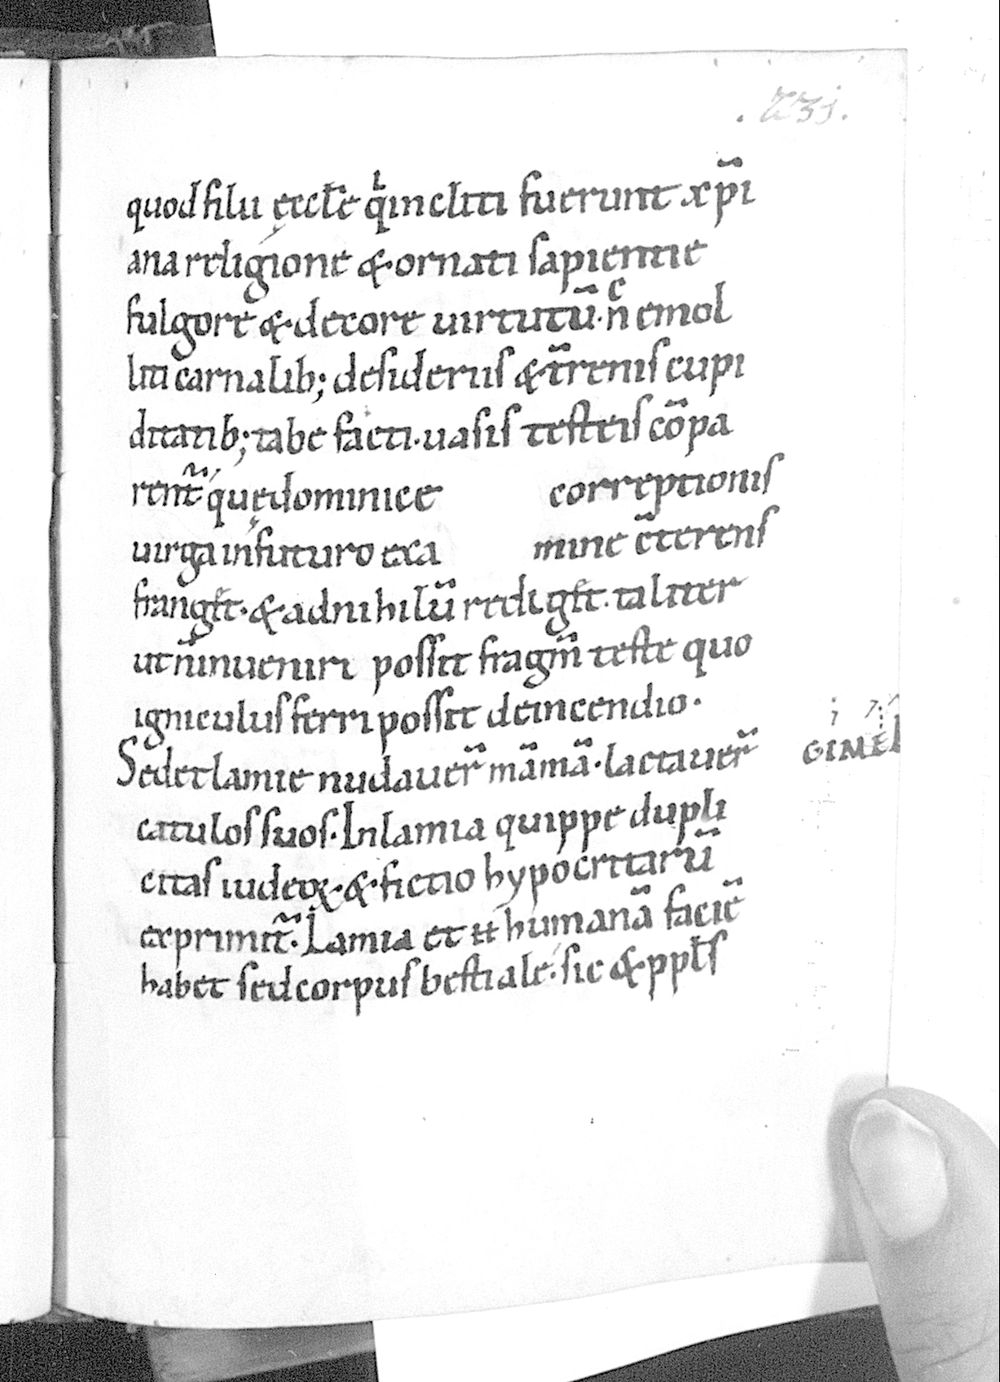 .231.
quod filii ęccl̄e qͥ incliti fuerunt xp̄i
ana religione & ornati sapientie
fulgore & decore uirtutū· nͨ emol
liti carnalib; desideriis & t̄renis cupi
ditatib; tabe facti· uasis testeis cōpa
rent̄ quę dominice correptionis
uirga in futuro exa mine c̄terens
frang&̄· & ad nihilū redig&̄· taliter
ut n̄ inueniri possit fragm̄ teste quo
igniculus ferri possit de incendio·
Sed et lamie nudauer̄ māmā· lactauer̄
GIMEL
catulos suos· In lamia quippe dupli
citas iudeoꝝ· & fictio hypocritarū
exprimit̄· Lamia et ii humanā faciē
habet sed corpus bestiale· sic & ppl̄s